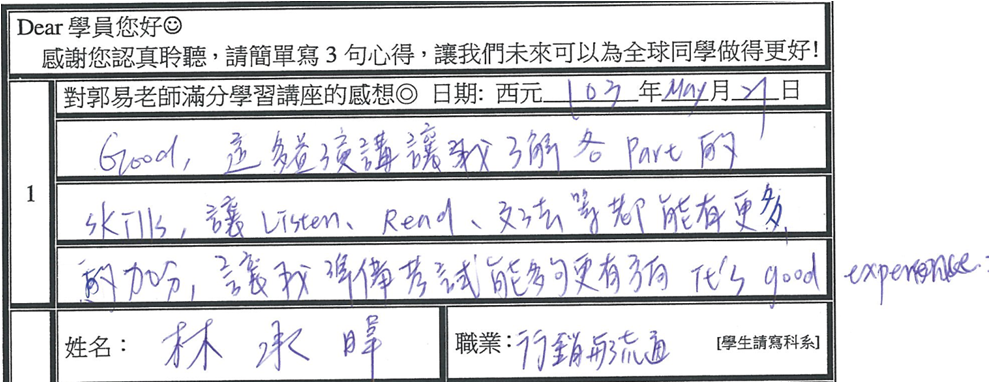 Dear 學員您好☺
感謝您認真聆聽，請簡單寫 3 句心得，讓我們未來可以為全球同學做得更好!
1
對郭易老師滿分學習講座的感想◎ 日期: 西元 103 年 May 月 21 日
Good, 這 多益演講讓我了解各 Part 的
skills, 讓 Listen、Read、文法等都能有更多
的加分, 讓我準備考試能夠更有方向 It's good experience.
姓名： 林承暐 職業：行銷與流通 [學生請寫科系]